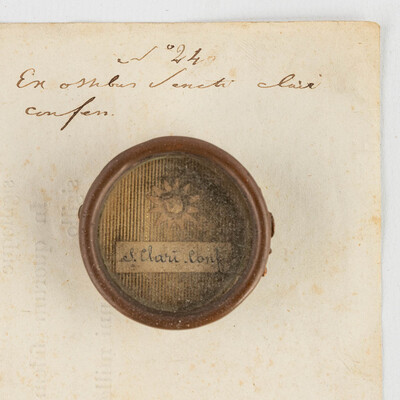 N° 24
Ex ossibus Sancti Clari
confess.
S. Clari. Conf.